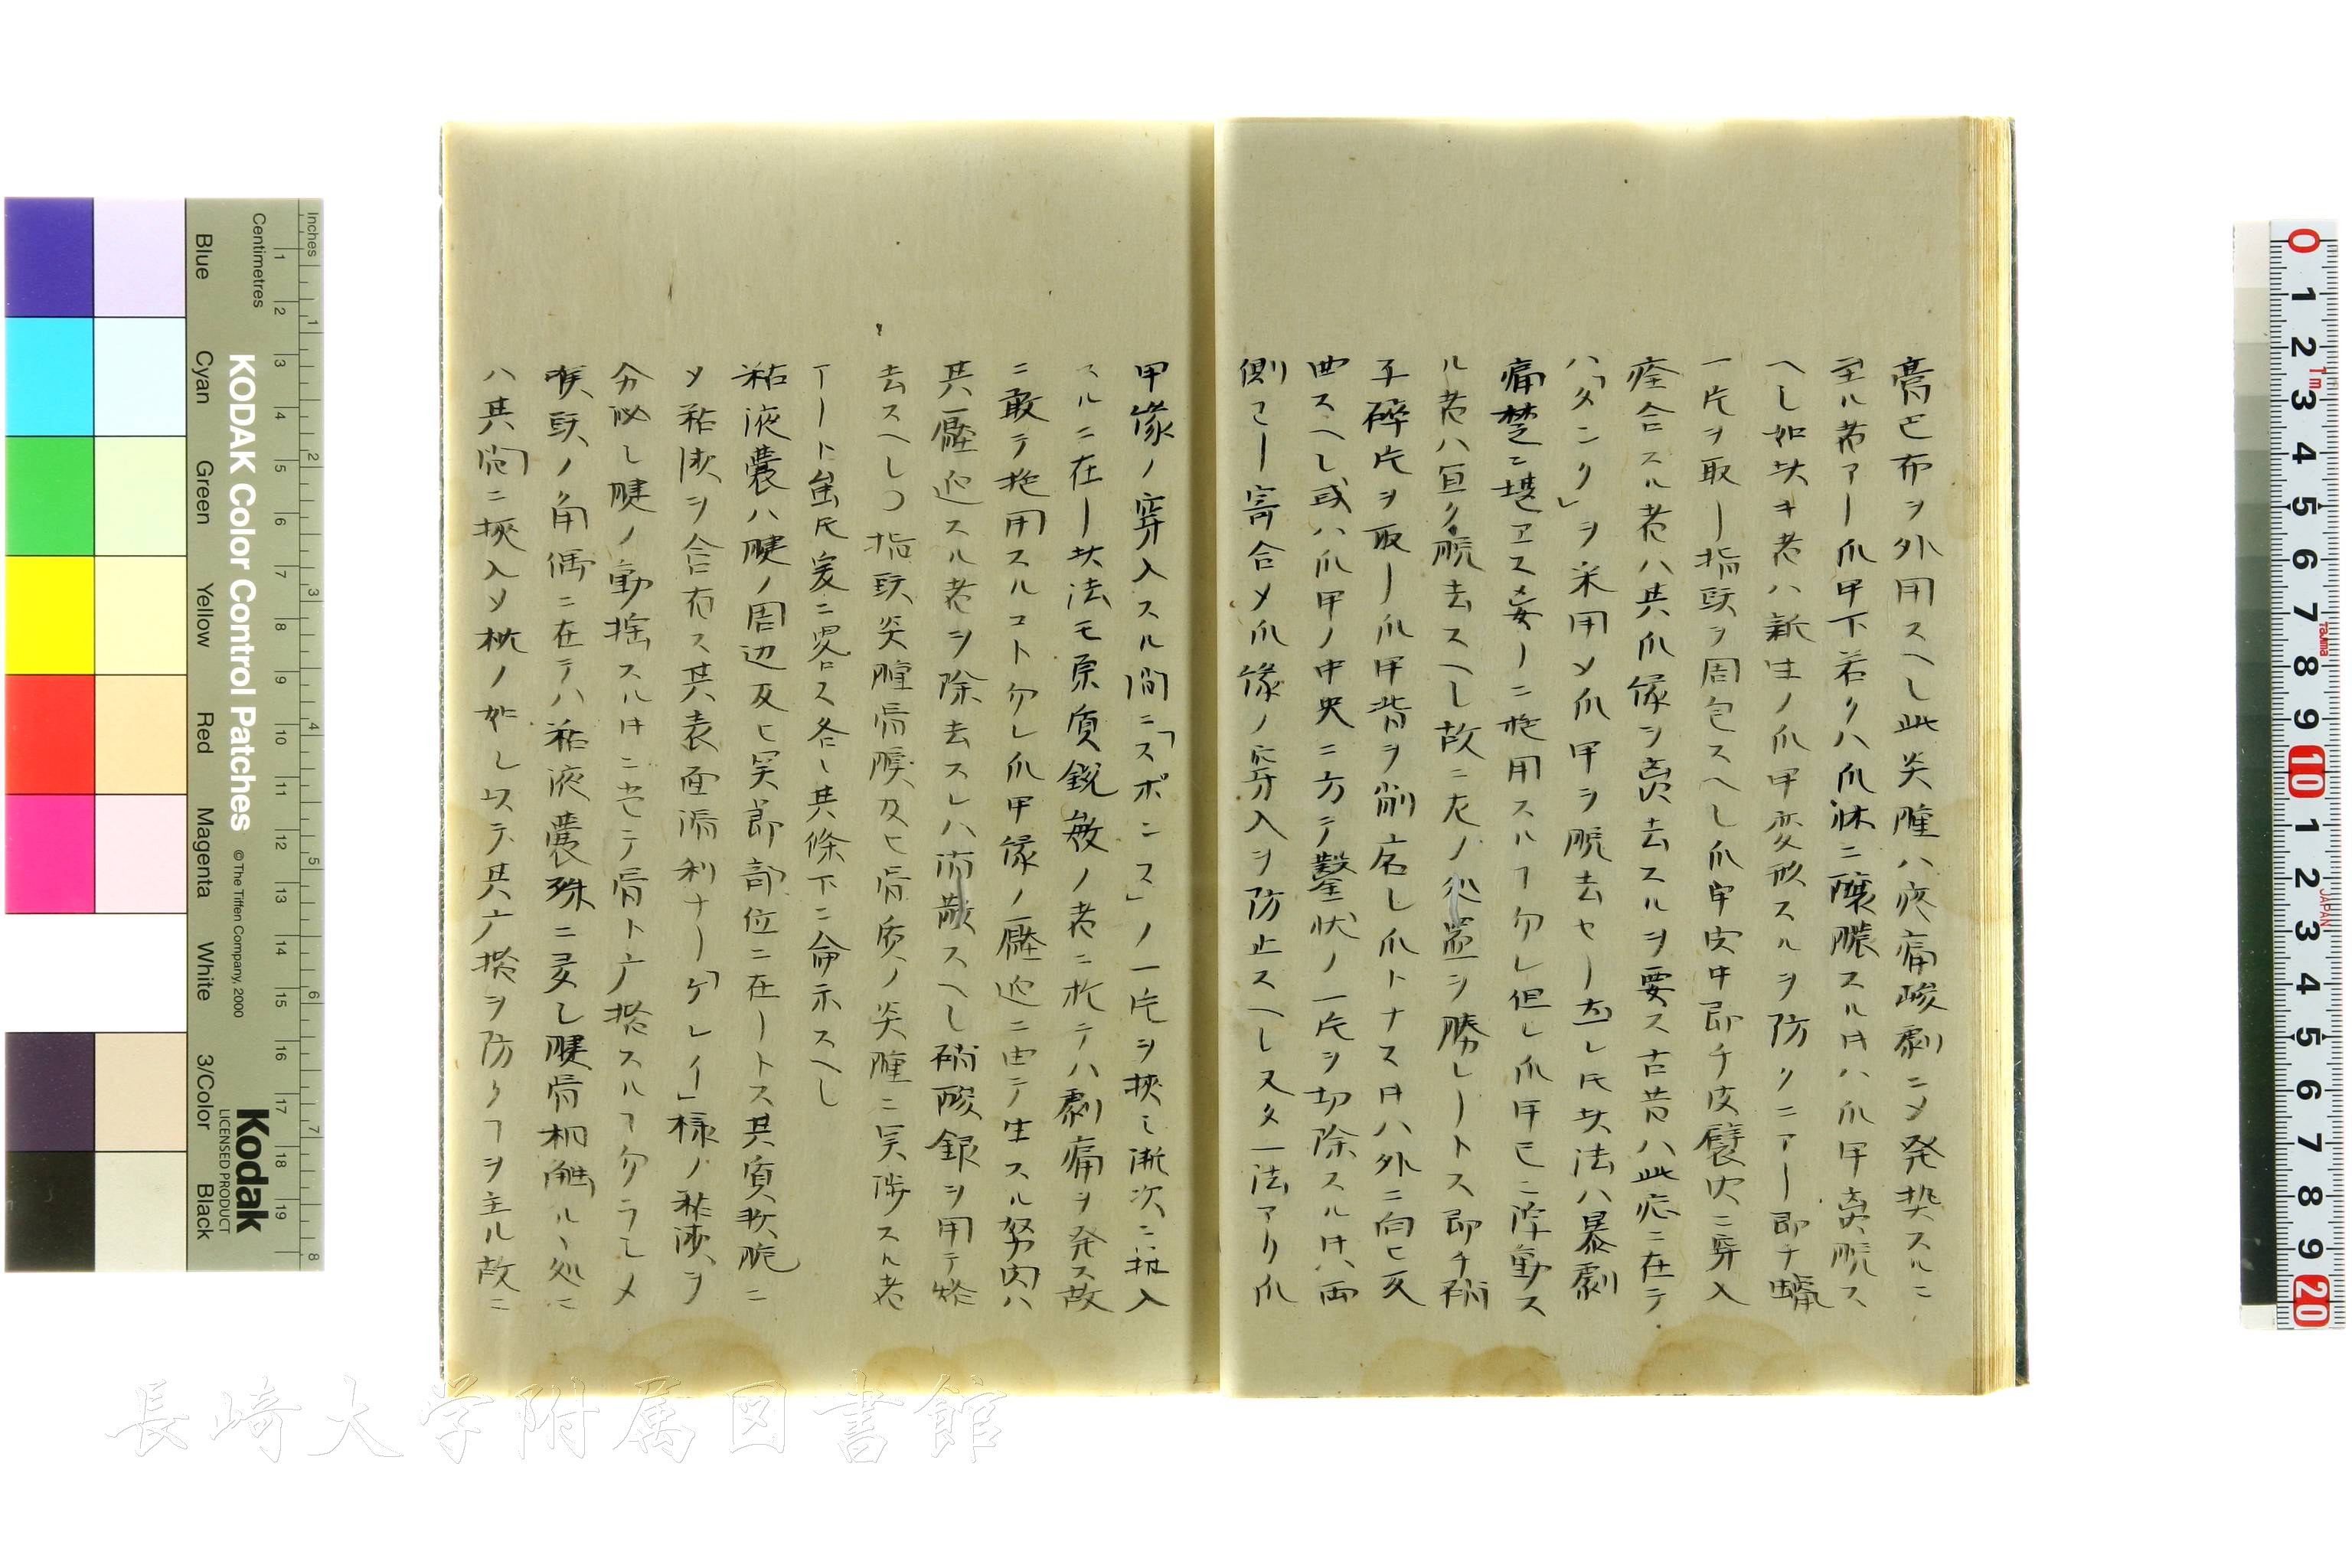 膏巴布ヲ外用スヘし此炎腫ハ疼痛峻劇ニメ発熱スルニ
至ル者アリ爪甲下若クハ爪牀ニ醸膿スル时ハ爪甲賣脱ス
へし如扶キ者ハ新生ノ爪甲変形スルヲ防クニアリ即チ蠟
一片ヲ取リ指頭ヲ周包スヘし爪牢実中即チ皮襞内ニ穿入
痊合スル者ハ其爪縁ヲ賣去スルヲ要ス古昔ハ此症ニ在テ
ハ「タンク」ヲ采用メ爪甲ヲ脱去セリ然レ圧扶法ハ暴劇
痛楚ニ堪ヱス妄リニ施用スルヿ勿レ但し爪甲已ニ浮動ス
ル者ハ宜ク脱去スヘし故ニ左ノ処置ヲ勝レリトス即チ硝
子碎片ヲ取リ爪甲背ヲ削
曲スヘし或ハ爪甲ノ中央ニ方テ鑿状ノ一片ヲ切除スル时ハ両
側ヨリ寄合メ爪縁ノ穿入ヲ防止スヘし又タ一法アリ爪
甲縁ノ穿入スル間ニ「スポンス」ノ一片ヲ挾ミ漸次ニ挿入
スルニ在リ扶法モ原質鋭敏ノ者ニ於テハ劇痛ヲ発ス故
ニ敢テ施用スルコト勿レ爪甲縁ノ壓迫ニ由テ生スル努肉ハ
其壓迫スル者ヲ除去スレハ消散スヘし硝酸銀ヲ用テ烙
去スヘし〇指頭炎腫骨膜及ヒ骨质ノ炎腫ニ関渉スル者
アリト虽圧爰ニ畧ス各し其條下ニ侖示スヘし
粘液囊ハ腱ノ周辺及ヒ関節部位ニ在リトス其質軟脆ニ
メ粘液ヲ含有ス其表面滑利ナリ「ゲレイ」様ノ粘液ヲ
分泌し腱ノ動揺スル时ニ方テ骨ト摩擦スルヿ勿ラしメ
喉頭ノ角偶ニ在テハ粘液囊殊ニ多し腱骨相觸ルヽ処ニ
ハ其間ニ挾入メ枕ノ如し以テ其摩擦ヲ防クヿヲ主ル故ニ
長崎大学附属図書館
KODAK Color Control Patches
© The Tiffen Company, 2000
Kodak
LICENSED PRODUCT
Inches
Centimetres
Blue
Cyan
Green
Yellow
Red
Magenta
White
3/Color
Black
1 2 3 4 5 6 7 8 9 10 11 12 13 14 15 16 17 18 19
1 2 3 4 5 6 7 8
0 1 2 3 4 5 6 7 8 9 10 1 2 3 4 5 6 7 8 9 20
1m
Tajima
JAPAN